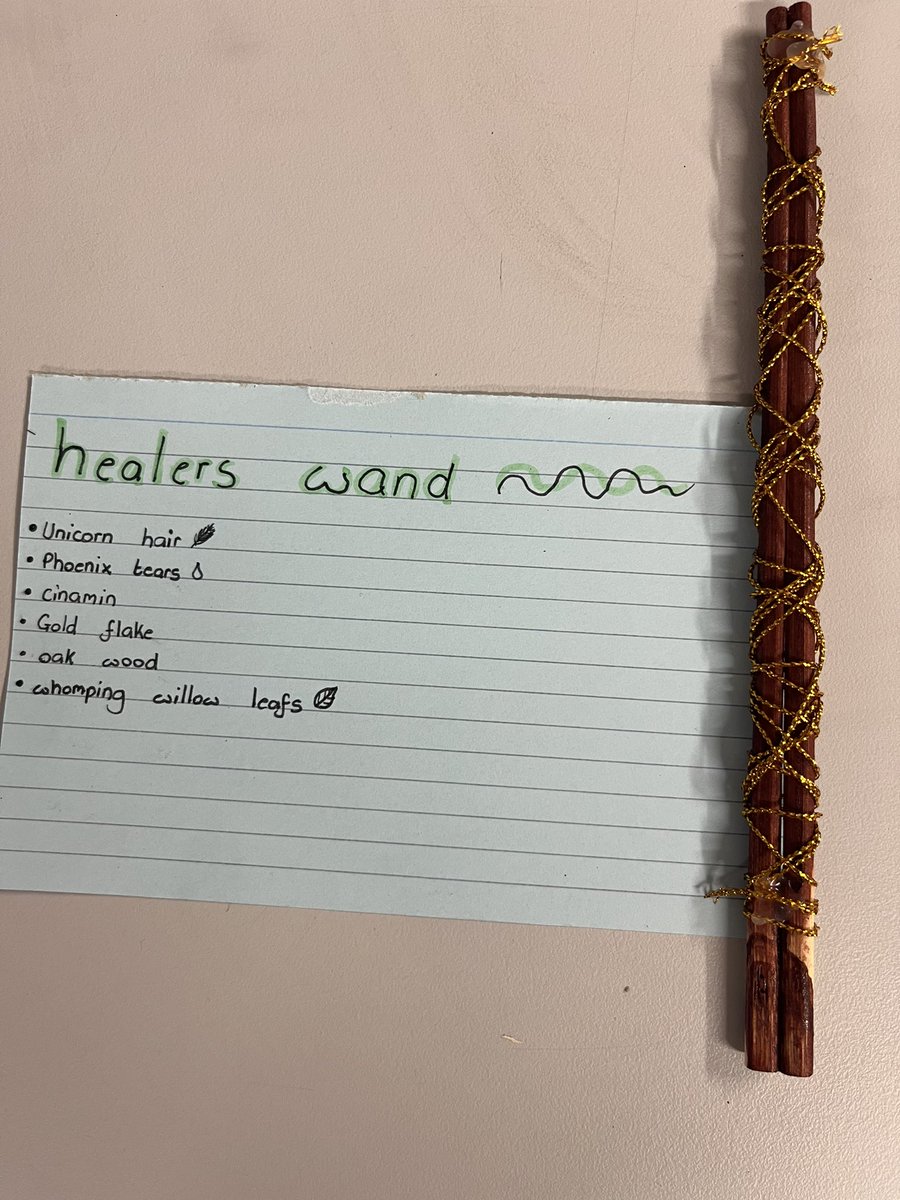 healers wand
• Unicorn hair
• Phoenix tears
• cinamin
• Gold flake
• oak wood
• whomping willow leafs